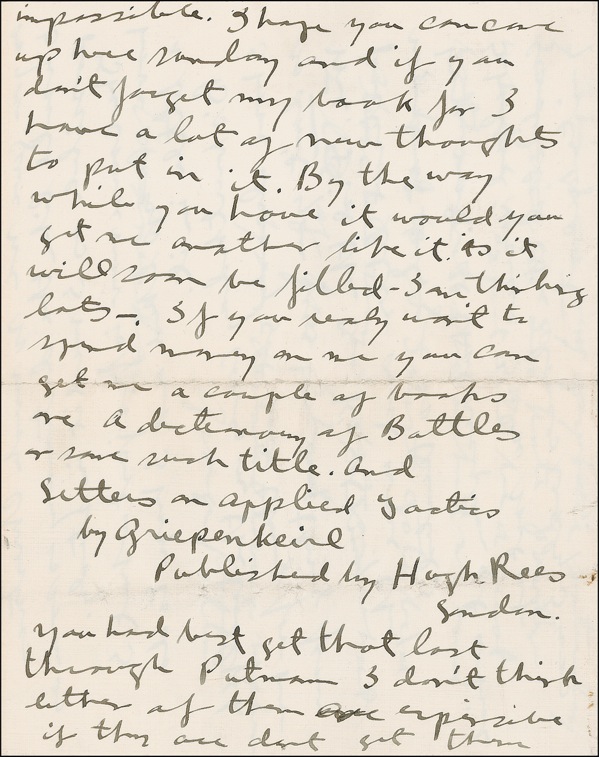 impossible. I hope you can come
up here sunday and if you
don't forget my book for I
have a lot of new thoughts
to put in it. By the way
while you have it would you
get me another like it. as it
will soon be filled - I am thinking
lots -. If you realy want to
spend money on me you can
get me a couple of books
one A dictionary of Battles
or some such title. and
Letters on applied Tactics
by Griepenkeirl
Published by Hugh Rees
London.
you had best get that last
through Putnam I don't think
either of them are expensive
if they are dont get them